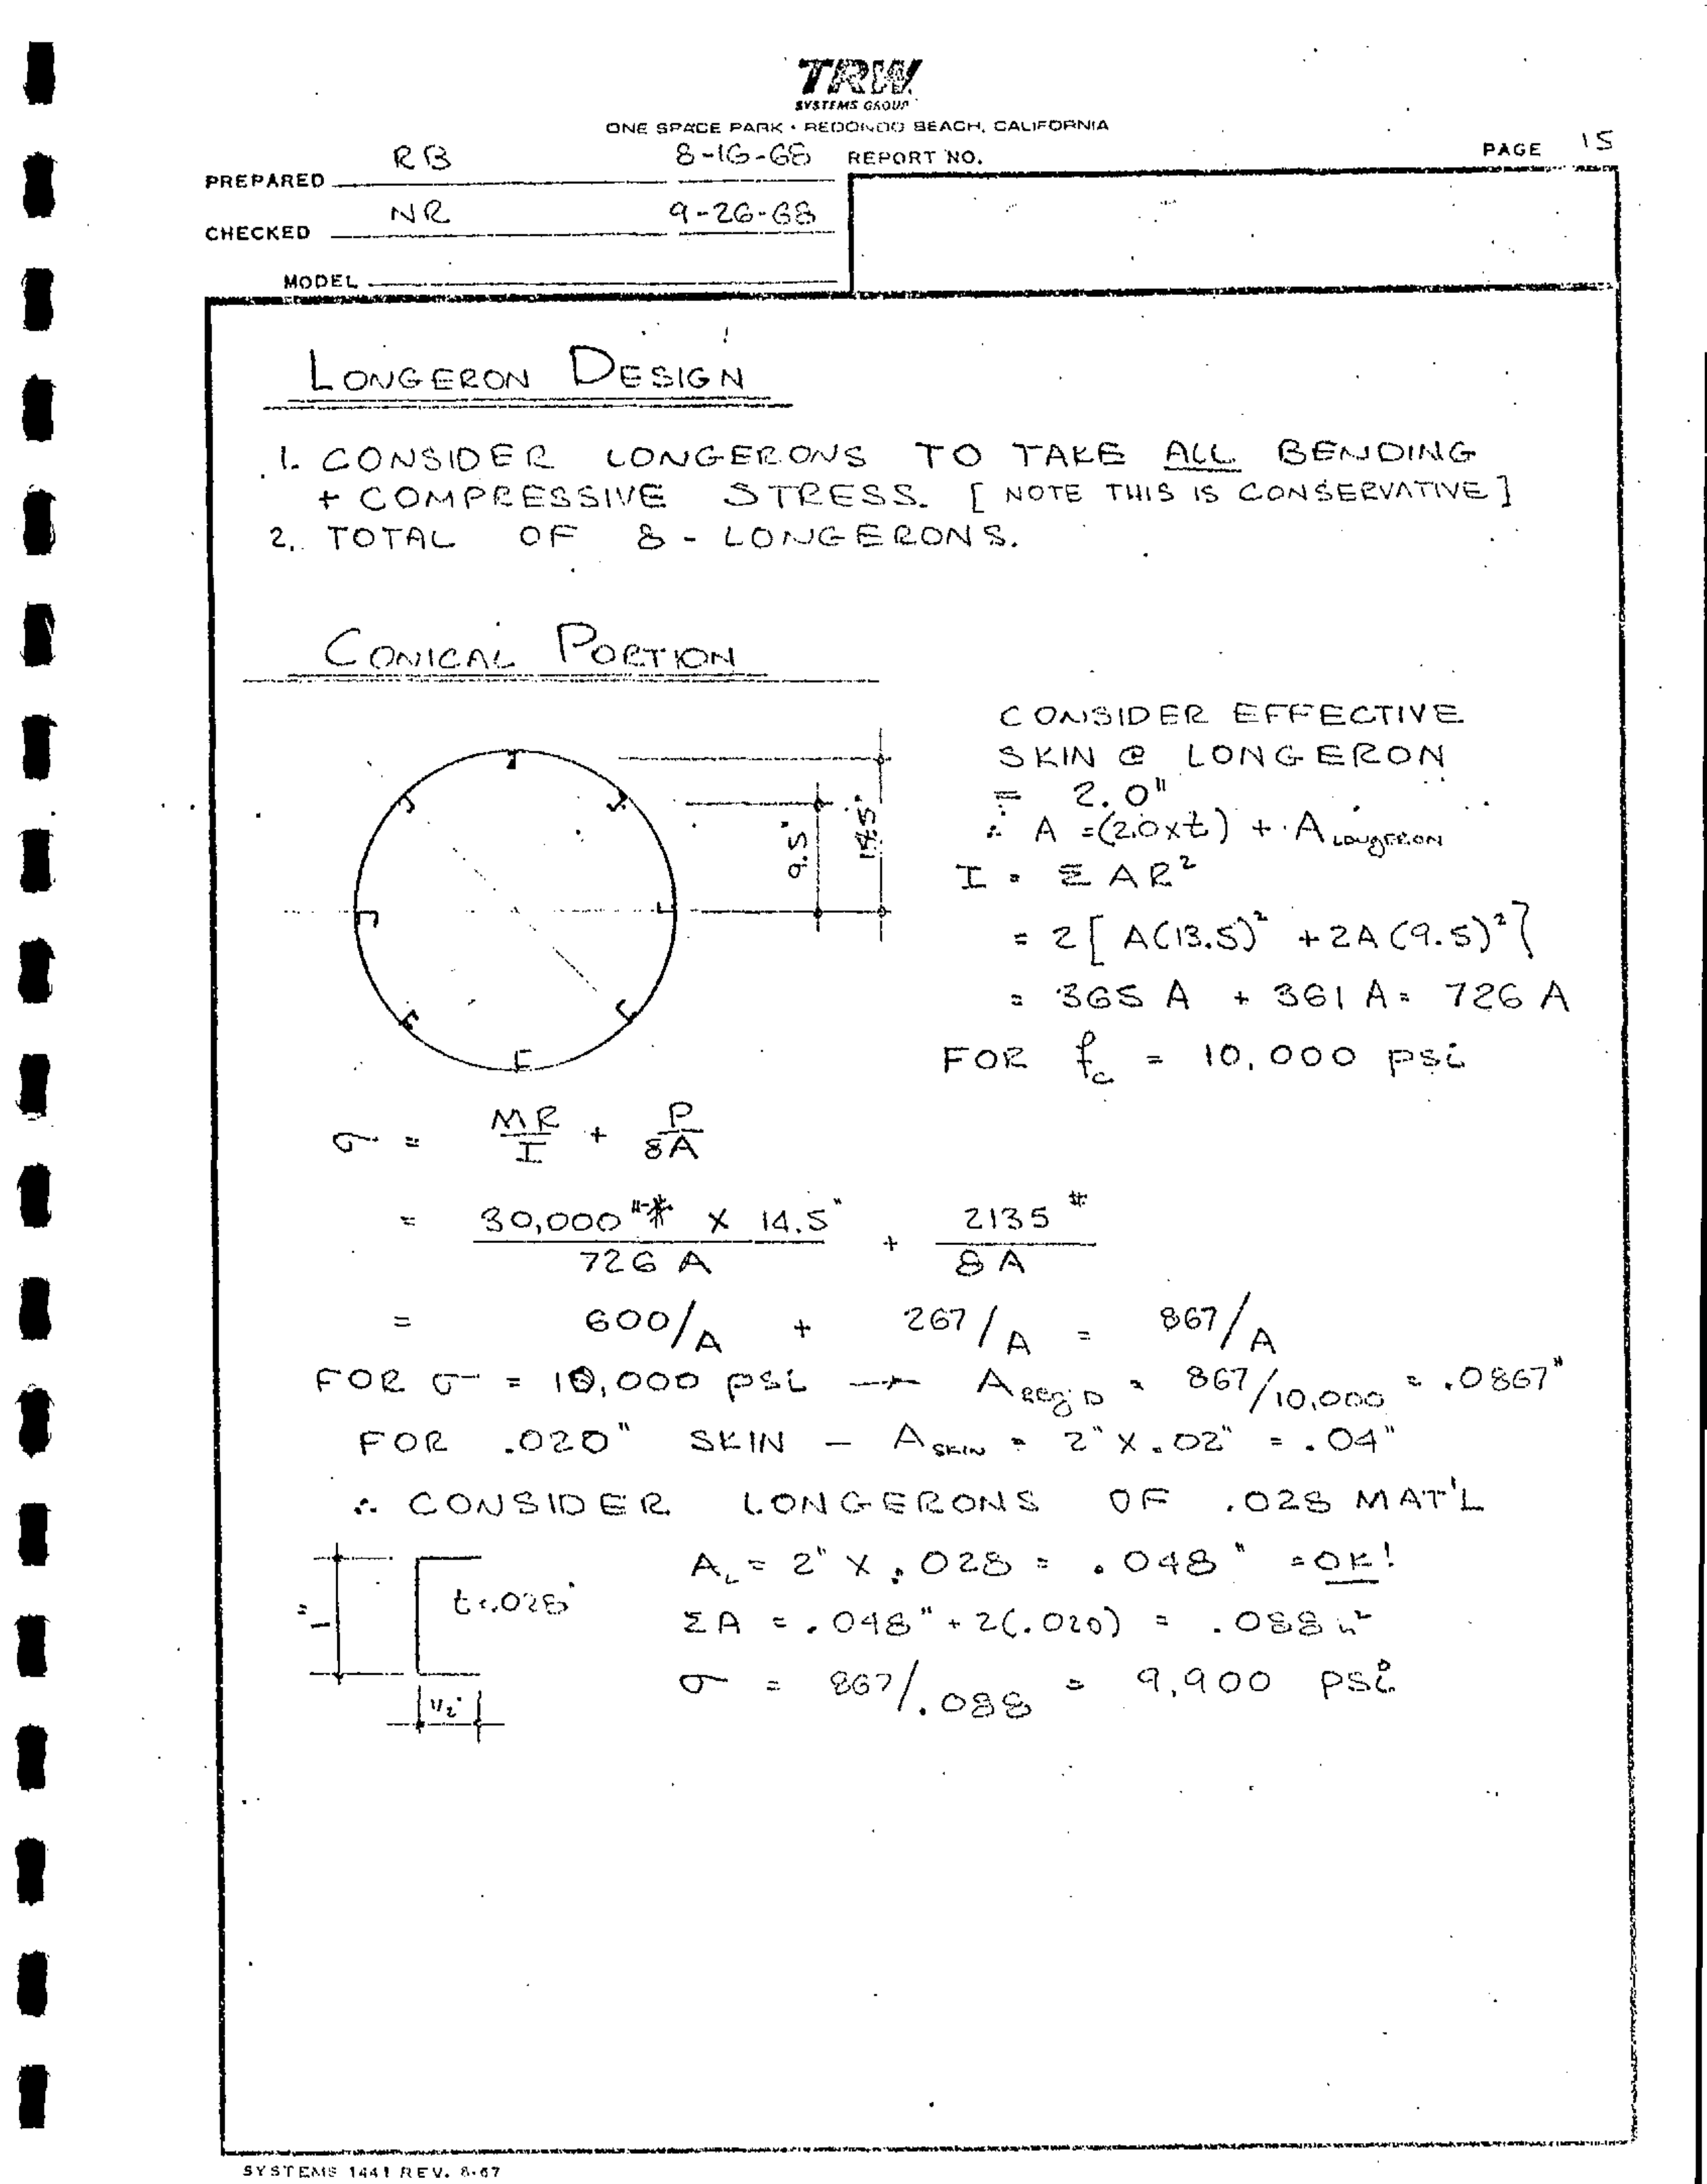 TRW
SYSTEMS GROUP
ONE SPACE PARK • REDONDO BEACH, CALIFORNIA
PREPARED RB 8-16-68 REPORT NO. PAGE 15
CHECKED NR 9-26-68
MODEL
LONGERON DESIGN
1. CONSIDER LONGERONS TO TAKE ALL BENDING
+ COMPRESSIVE STRESS. [NOTE THIS IS CONSERVATIVE]
2. TOTAL OF 8 - LONGERONS.
CONICAL PORTION
CONSIDER EFFECTIVE
SKIN @ LONGERON
= 2.0"
∴ A = (2.0xt) + A LONGERON
9.5"
I = Σ AR²
= 2[A(13.5)² + 2A(9.5)²]
= 365 A + 361 A = 726 A
FOR fc = 10,000 psi
σ = MR/I + P/8A
= 30,000"-# X 14.5"/726 A + 2135#/8A
= 600/A + 267/A = 867/A
FOR σ = 10,000 psi → A REQ'D = 867/10,000 = .0867"
FOR .020" SKIN - A SKIN = 2" X .02" = .04"
∴ CONSIDER LONGERONS OF .028 MAT'L
AL = 2" X .028 = .048" = OK!
1"
t=.028"
ΣA = .048" + 2(.020) = .088 in²
σ = 867/.088 = 9,900 psi
1/2"
SYSTEMS 1441 REV. 8-67